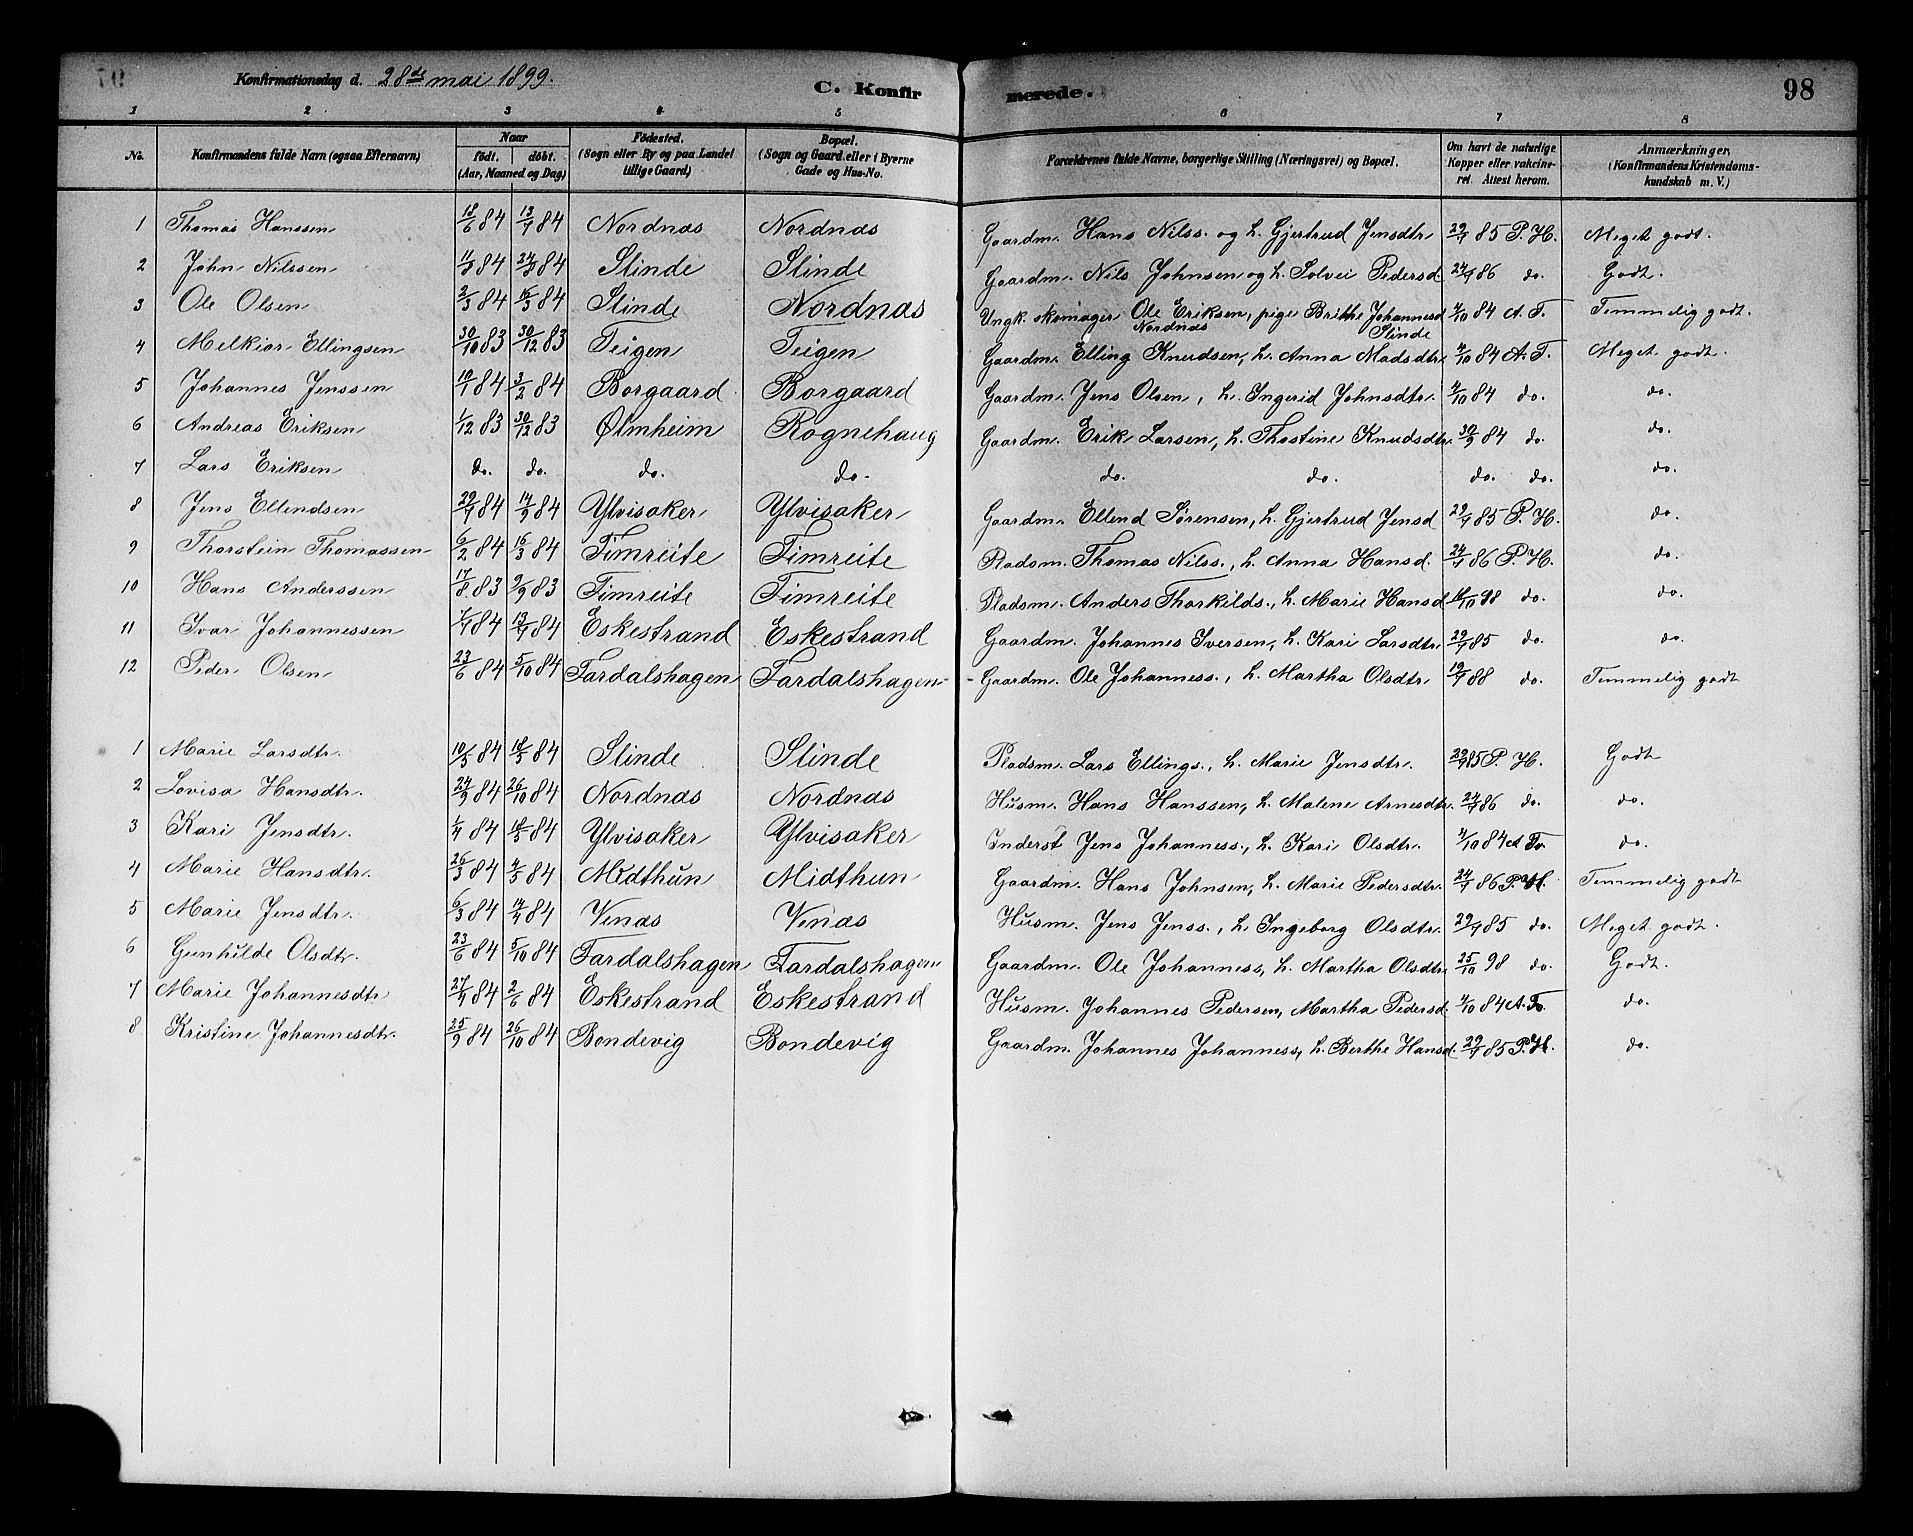 Konfirmationsdag d. 28de mai 1899. C. Konfirmerede. 98
1 2 3 4 5 6 7 8
No. Konfirmandens fulde Navn (ogsaa Efternavn) Naar født. døbt. (Aar, Maaned og Dag) Fødested. (Sogn eller By og paa Landet tillige Gaard) Bopæl. (Sogn og Gaard, eller i Byerne Gade og Hus-No. Forældrenes fulde Navne, borgerlige Stilling (Næringsvei) og Bopæl. Om havt de naturlige Kopper eller vakcineret. Attest herom. Anmærkninger, (Konfirmandens Kristendomskundskab m. V.)
1 Thomas Hanssen 18/6 84 13/7 84 Nordnæs Nordnæs Gaardm. Hans Nilss. og h. Gjertrud Jensdtr 29/7 85 P. H. Meget godt.
2 John Nilssen 11/3 84 24/3 84 Slinde Slinde Gaardm. Nils Johnsen og h. Solvei Pedersd 24/7 86 do. Godt.
3 Ole Olsen 2/3 84 16/3 84 Slinde Nordnæs Ungk. skomager Ole Eriksen, pige Brithe Johannesd 4/10 84 A. T. Temmelig godt.
Nordnæs Slinde
4 Melkior Ellingsen 30/10 83 30/12 83 Teigen Teigen Gaardm. Elling Knudsen, h. Anna Madsdtr 4/10 84 A. T. Meget godt.
5 Johannes Jenssen 10/1 84 3/2 84 Borgaard Borgaard Gaardm. Jens Olsen, h. Ingerid Johnsdtr. 4/10 84 do. do.
6 Andreas Eriksen 1/12 83 30/12 83 Ølmheim Rognehaug Gaardm. Erik Larsen, h. Thostine Knudsdtr. 30/9 84 do. do.
7 Lars Eriksen do. do. do. do. do. do. do. do. do.
8 Jens Ellendsen 29/7 84 14/9 84 Ylvisaker Ylvisaker Gaardm. Ellend Sørensen, h. Gjertrud Jensd 29/7 85 P. H. do.
9 Thorstein Thomassen 6/2 84 16/3 84 Timreite Timreite Pladsm. Thomas Nilss., h. Anna Hansd. 24/7 86 P. H. do.
10 Hans Anderssen 17/8 83 9/9 83 Timreite Timreite Pladsm. Anders Thorkilds., h. Marie Hansd 16/10 98 do. do.
11 Ivar Johannessen 7/4 84 13/4 84 Eskestrand Eskestrand Gaardm. Johannes Iversen, h. Kari Larsdtr. 29/7 85 do. do.
12 Peder Olsen 23/6 84 5/10 84 Fardalshagen Fardalshagen Gaardm. Ole Johanness., h. Martha Olsdtr 19/7 88 do. Temmelig godt
1 Marie Larsdtr. 10/5 84 18/5 84 Slinde Slinde Pladsm. Lars Ellings., h. Marie Jensdtr. 29/7 85 P. H. Godt
2 Lovisa Hansdtr. 24/9 84 26/10 84 Nordnæs Nordnæs Husm. Hans Hanssen, h. Malene Arnesdtr. 24/7 86 do. do.
3 Kari Jensdtr. 1/4 84 18/5 84 Ylvisaker Ylvisaker Inderst Jens Johanness., h. Kari Olsdtr. 4/10 84 A T. do.
4 Marie Hansdtr. 26/3 84 4/5 84 Midthun Midthun Gaardm. Hans Johnsen, h. Marie Pedersdtr. 24/7 86 P. H. Temmelig godt
5 Marie Jensdtr. 6/3 84 14/4 84 Venæs Venæs Husm. Jens Jenss., h. Ingeborg Olsdtr. 29/7 85 do. Meget godt.
6 Gunhilde Olsdtr. 23/6 84 5/10 84 Fardalshagen Fardalshagen Gaardm. Ole Johanness, h. Martha Olsdtr 25/10 98 do. Godt.
7 Marie Johannesdtr 27/4 84 2/6 84 Eskestrand Eskestrand Husm. Johannes Pedersen, Martha Pedersd. 4/10 84 A. T. do.
8 Kristine Johannesdtr. 25/9 84 26/10 84 Bondevig Bondevig Gaardm. Johannes Johanness, h. Berthe Hansd. 29/7 85 P. H. do.